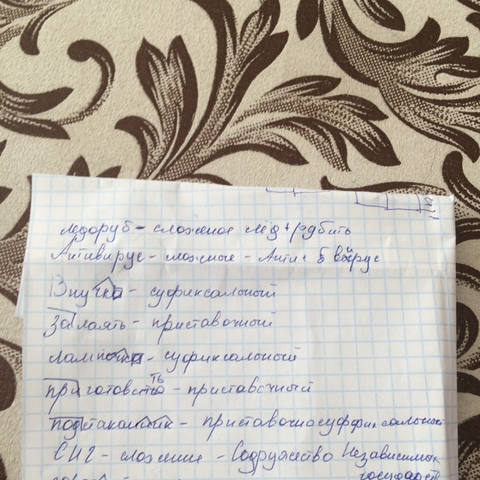 ледоруб - сложение лёд + рубить
Антивирус - сложение - Анти + вирус
Внучка - суфиксальный
залаять - приставочный
лампочка - суфиксальный
приготовить - приставочный
подстаканник - приставочносуффиксальный
СНГ - сложение - Содружество Независимых
государств